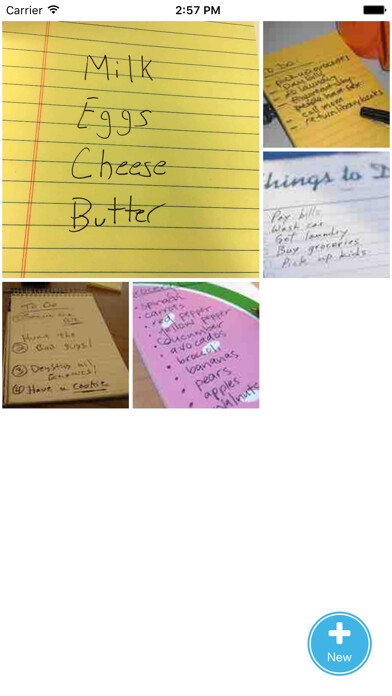 Carrier
2:57 PM
Milk
Eggs
Cheese
Butter
To Do:
- pick up groceries
- pay bills
- do laundry
- call mom
- return library books
Things to D
Pay bills
Wash car
Get laundry
Buy groceries
Pick up kids
To Do
Hunt the
Bad guys!
③ Destroy all
④ Have a Cookie
spinach
• carrots
• red pepper
• yellow pepper
• cucumber
• avocados
• broccoli
• bananas
• pears
• apples
walnuts
New